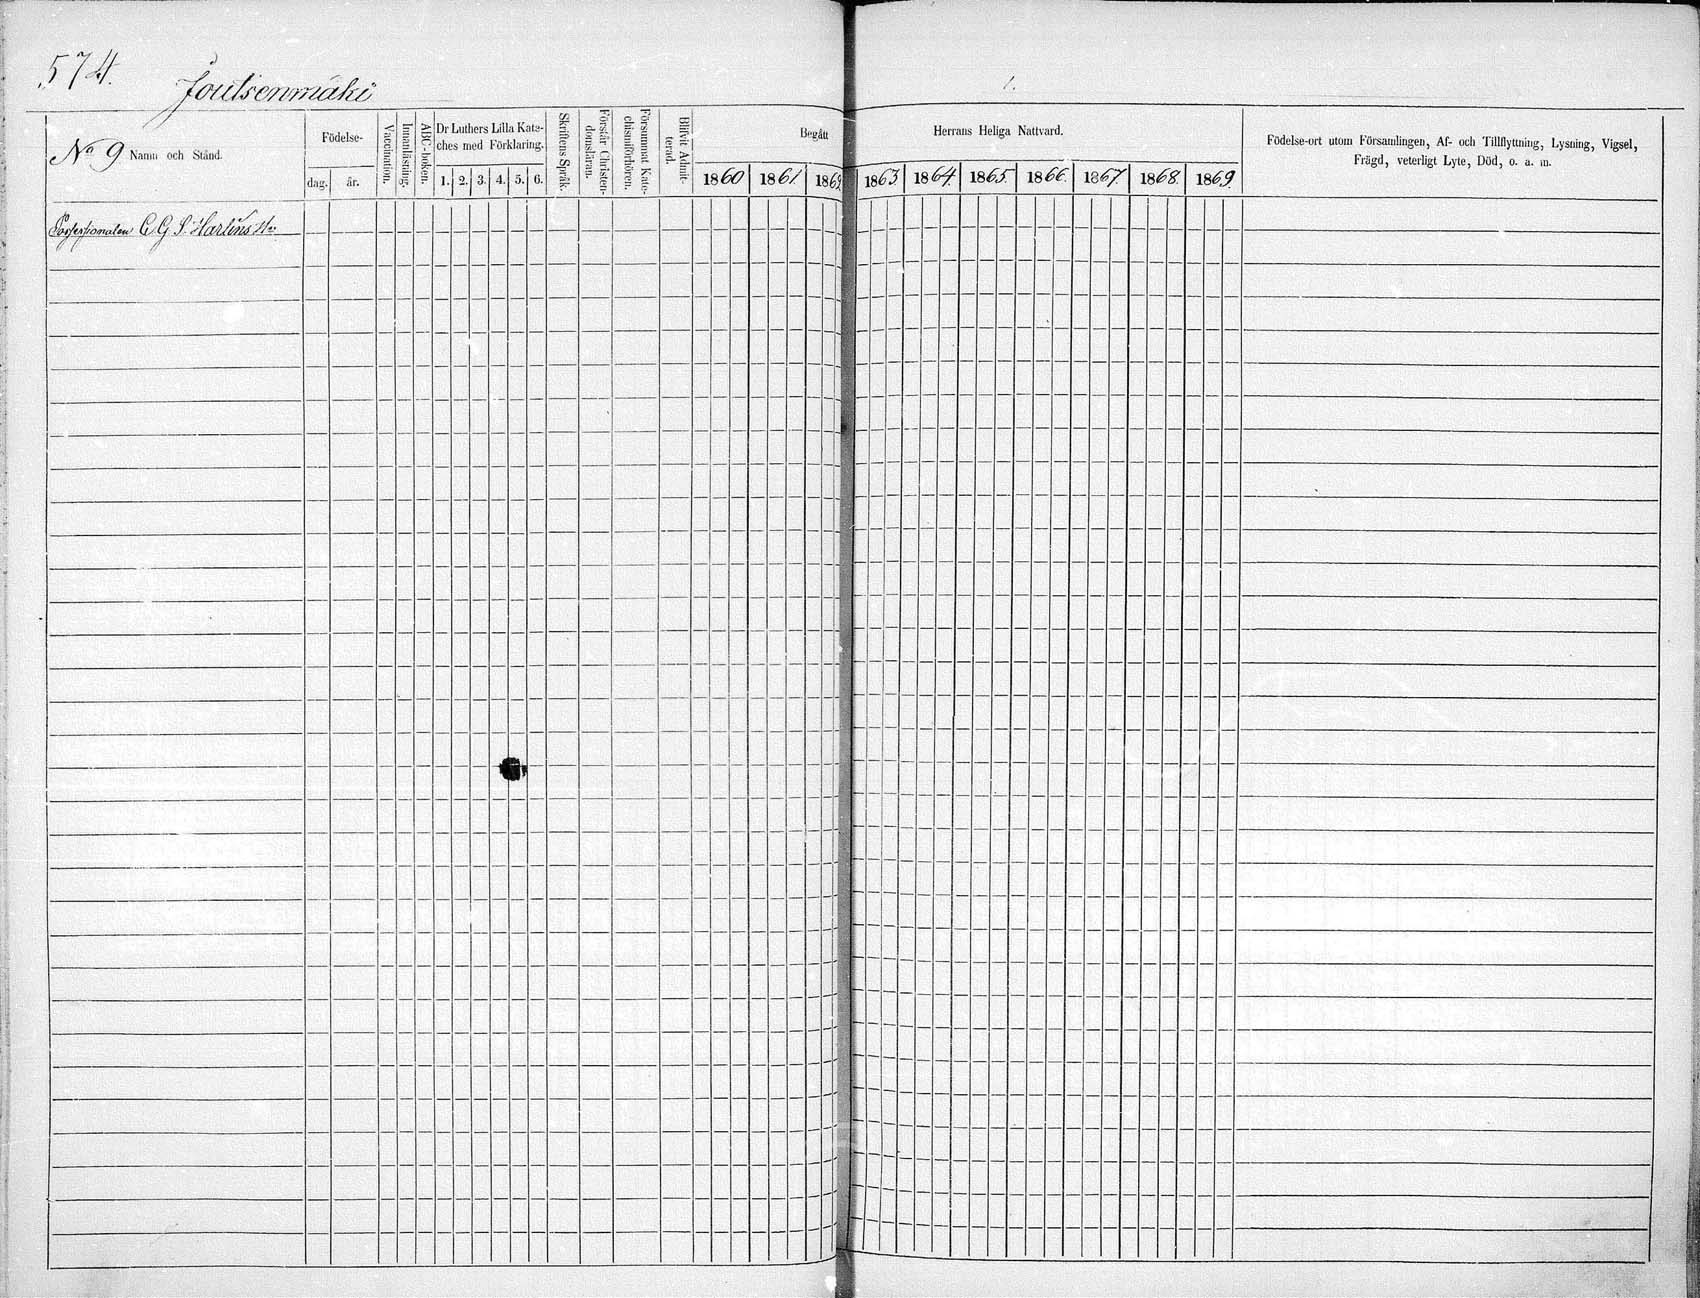 574.
Joutsenmäki
No 9 Namn och Stånd.
Födelse-
dag. år.
Vaccination.
Innanläsning.
ABC-boken.
Dr Luthers Lilla Kate-
ches med Förklaring.
1. 2. 3. 4. 5. 6.
Skriftens Språk.
Förstår Christen-
domsläran.
Försummat Kate-
chismiförhören.
Blifvit Admit-
terad.
Begått Herrans Heliga Nattvard.
1860 1861. 1862. 1863. 1864. 1865. 1866. 1867. 1868. 1869.
Födelse-ort utom Församlingen, Af- och Tillflyttning, Lysning, Vigsel,
Frägd, veterligt Lyte, Död, o. a. m.
C G S